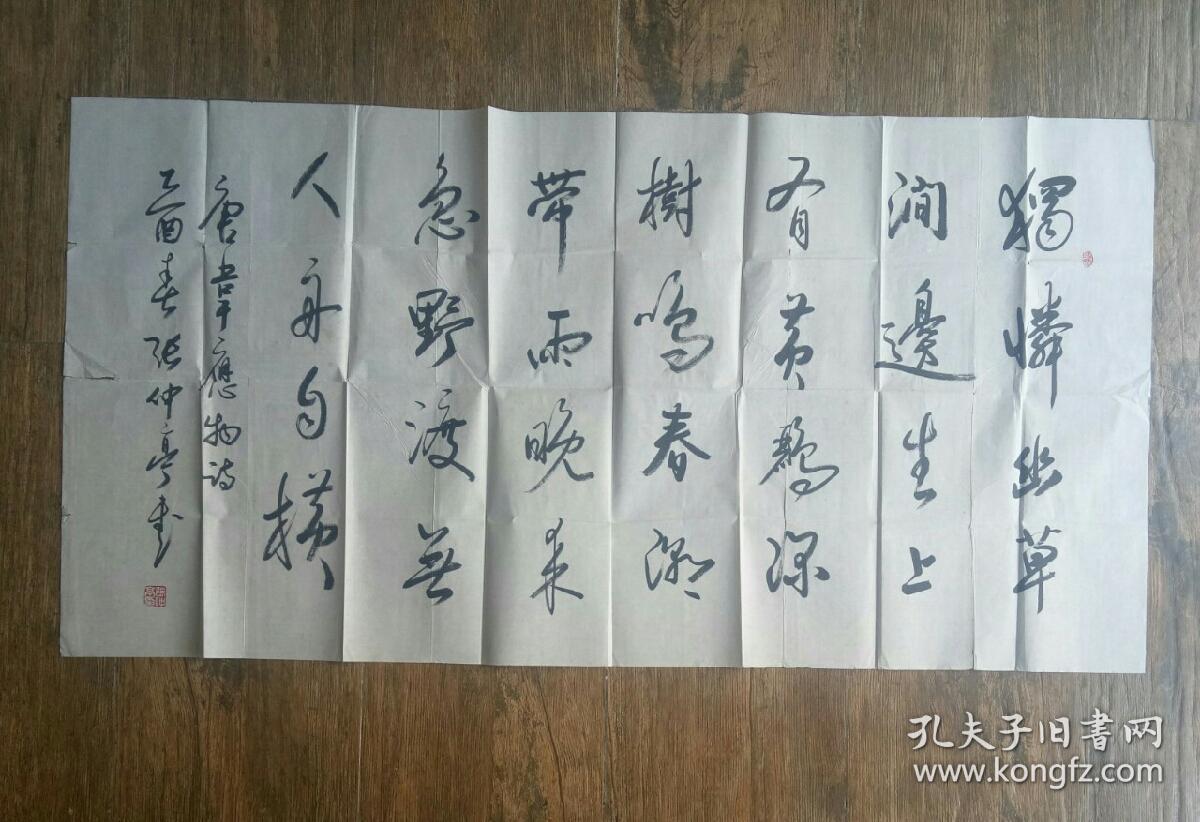 獨憐幽草
澗邊生上
有黄鸝深
樹鳴春潮
帶雨晚来
急野渡無
人舟自横
唐韋應物詩
乙酉春張仲亭書
孔夫子旧书网
www.kongfz.com